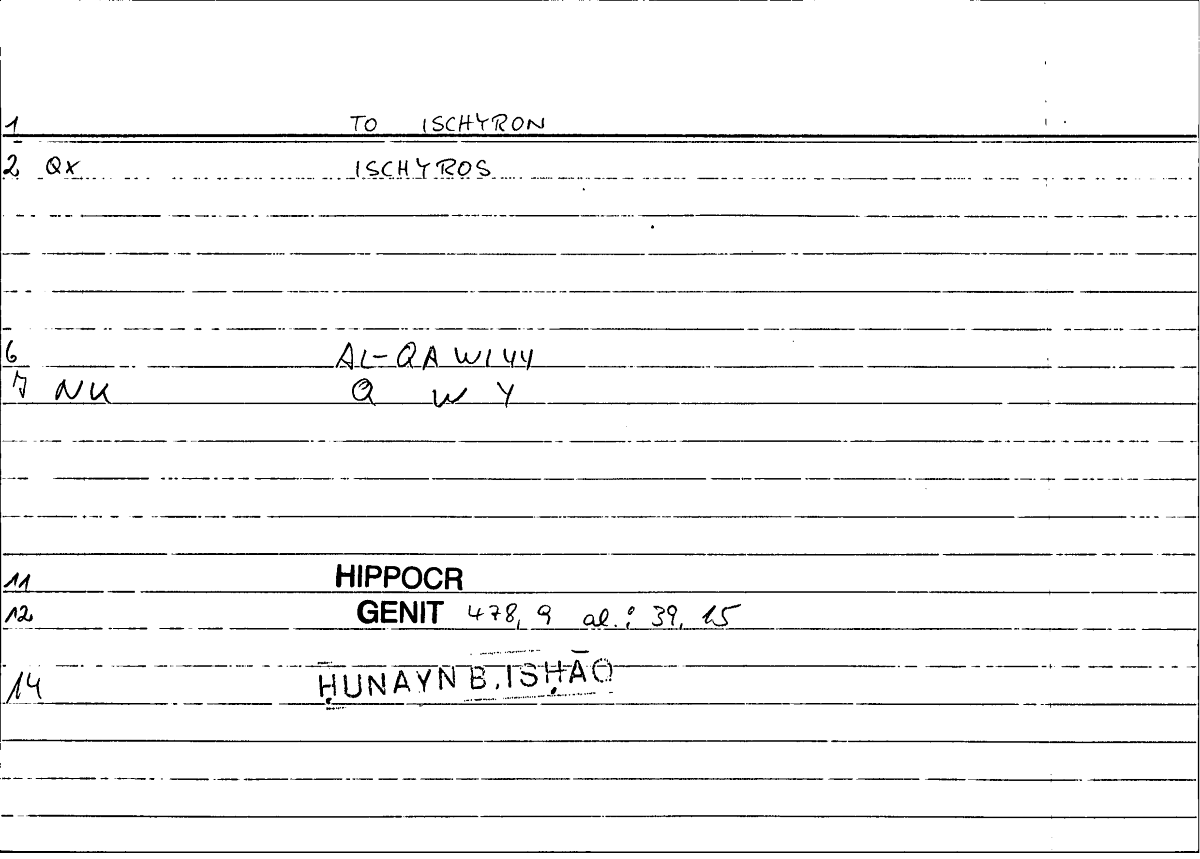 1 TO ISCHYRON
2 QX ISCHYROS
6 AL-QAWIYY
7 NK Q W Y
11 HIPPOCR
12 GENIT 478, 9 al.: 39, 15
14 ḤUNAYN B. ISḤĀQ